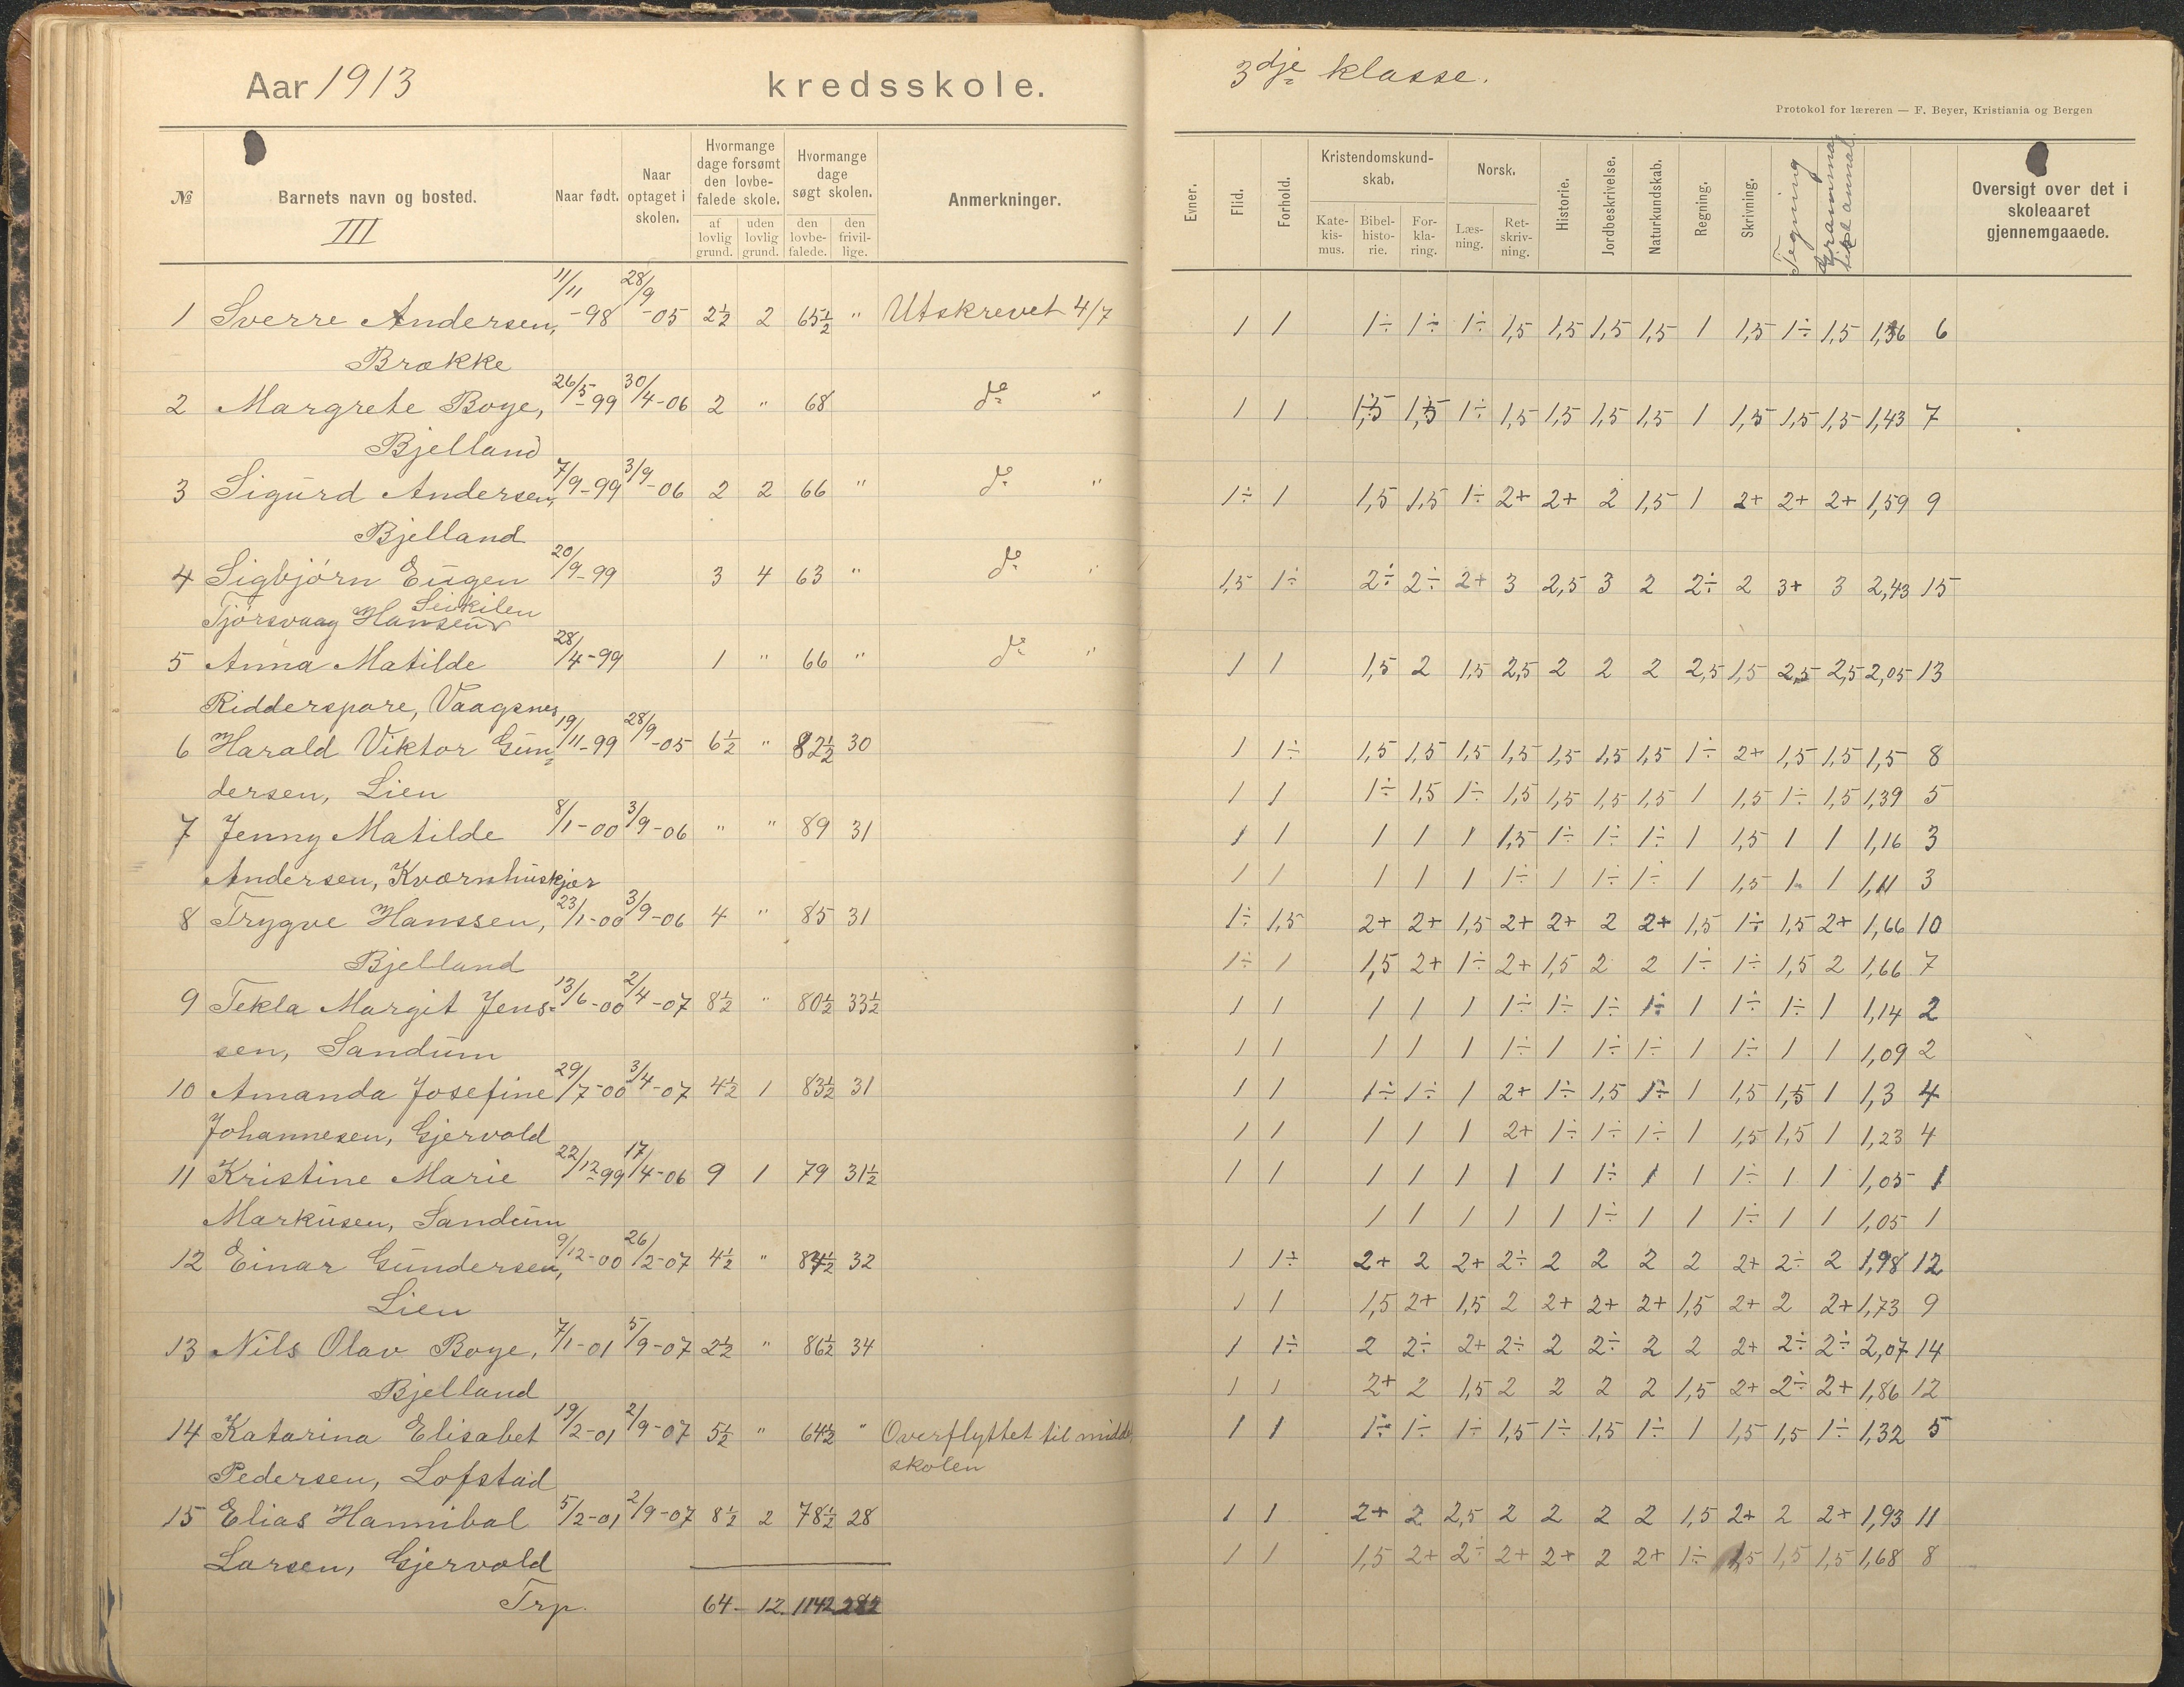 Aar 1913 kredsskole.
№ Barnets navn og bosted. Naar født. Naar optaget i skolen. Hvormange dage forsømt den lovbefalede skole. af lovlig grund. uden lovlig grund. Hvormange dage søgt skolen. den lovbefalede. den frivillige. Anmerkninger.
III
1 Sverre Andersen, 11/11-98 28/9-05 2½ 2 65½ " Utskrevet 4/7
Brække
2 Margrete Boye, 26/5-99 30/4-06 2 " 68 do "
Bjelland
3 Sigurd Andersen, 7/9-99 3/9-06 2 2 66 " do "
Bjelland
4 Sigbjørn Eugen 20/9-99 3 4 63 " do "
Seikilen
Tjørsvaag Hansen
5 Anna Matilde 28/4-99 1 " 66 " do "
Ridderspore, Vaagsnes
6 Harald Viktor Gun= 19/11-99 28/9-05 6½ " 82½ 30
dersen, Lien
7 Jenny Matilde 8/1-00 3/9-06 " " 89 31
Andersen, Kværnhuskjær
8 Trygve Hanssen, 23/1-00 3/9-06 4 " 85 31
Bjelland
9 Tekla Margit Jens= 13/6-00 2/4-07 8½ " 80½ 33½
sen, Sandum
10 Amanda Josefine 29/7-00 3/4-07 4½ 1 83½ 31
Johannesen, Gjervold
11 Kristine Marie 22/12-99 17/4-06 9 1 79 31½
Markusen, Sandum
12 Einar Gundersen, 9/12-00 26/2-07 4½ " 84½ 32
Lien
13 Nils Olav Boye, 7/1-01 5/9-07 2½ " 86½ 34
Bjelland
14 Katarina Elisabet 19/2-01 2/9-07 5½ " 64½ " Overflyttet til middel
skolen
Pedersen, Lofstad
15 Elias Hannibal 5/2-01 2/9-07 8½ 2 78½ 28
Larsen, Gjervold
Trp. 64 - 12. 1142 282
3dje klasse.
Protokol for læreren — F. Beyer, Kristiania og Bergen
Evner. Flid. Forhold. Kristendomskundskab. Katekismus. Bibelhistorie. Forklaring. Norsk. Læsning. Retskrivning. Historie. Jordbeskrivelse. Naturkundskab. Regning. Skrivning. Tegning Grammatikk Oversigt over det i skoleaaret gjennemgaaede.
1 1 1÷ 1÷ 1÷ 1,5 1,5 1,5 1,5 1 1,5 1÷ 1,5 1,36 6
1 1 1,5 1,5 1÷ 1,5 1,5 1,5 1,5 1 1,5 1,5 1,5 1,43 7
1÷ 1 1,5 1,5 1÷ 2+ 2+ 2 1,5 1 2+ 2+ 2+ 1,59 9
1,5 1÷ 2÷ 2÷ 2+ 3 2,5 3 2 2÷ 2 3+ 3 2,43 15
1 1 1,5 2 1,5 2,5 2 2 2 2,5 1,5 2,5 2,5 2,05 13
1 1÷ 1,5 1,5 1,5 1,5 1,5 1,5 1,5 1÷ 2+ 1,5 1,5 1,5 8
1 1 1÷ 1,5 1÷ 1,5 1,5 1,5 1,5 1 1,5 1÷ 1,5 1,39 5
1 1 1 1 1 1,5 1÷ 1÷ 1÷ 1 1,5 1 1 1,16 3
1 1 1 1 1 1÷ 1 1÷ 1÷ 1 1,5 1 1 1,11 3
1÷ 1,5 2+ 2+ 1,5 2+ 2+ 2 2+ 1,5 1÷ 1,5 2+ 1,66 10
1÷ 1 1,5 2+ 1÷ 2+ 1,5 2 2 1÷ 1÷ 1,5 2 1,66 7
1 1 1 1 1 1÷ 1÷ 1÷ 1÷ 1 1÷ 1÷ 1 1,14 2
1 1 1 1 1 1÷ 1 1÷ 1÷ 1 1÷ 1 1 1,09 2
1 1 1÷ 1÷ 1 2+ 1÷ 1,5 1÷ 1 1,5 1,5 1 1,3 4
1 1 1 1 1 2+ 1÷ 1÷ 1÷ 1 1,5 1,5 1 1,23 4
1 1 1 1 1 1 1 1÷ 1 1 1÷ 1 1 1,05 1
1 1 1 1 1 1÷ 1 1 1÷ 1 1 1,05 1
1 1÷ 2+ 2 2+ 2÷ 2 2 2 2 2+ 2÷ 2 1,98 12
1 1 1,5 2+ 1,5 2 2+ 2+ 2+ 1,5 2+ 2 2+ 1,73 9
1 1÷ 2 2÷ 2+ 2÷ 2 2÷ 2 2 2+ 2÷ 2÷ 2,07 14
1 1 2+ 2 1,5 2 2 2 2 1,5 2+ 2÷ 2+ 1,86 12
1 1 1÷ 1÷ 1÷ 1,5 1÷ 1,5 1÷ 1 1,5 1,5 1÷ 1,32 5
1 1 2+ 2 2,5 2 2 2 2 1,5 2+ 2 2+ 1,93 11
1 1 1,5 2+ 2÷ 2+ 2+ 2 2+ 1÷ 1,5 1,5 1,5 1,68 8